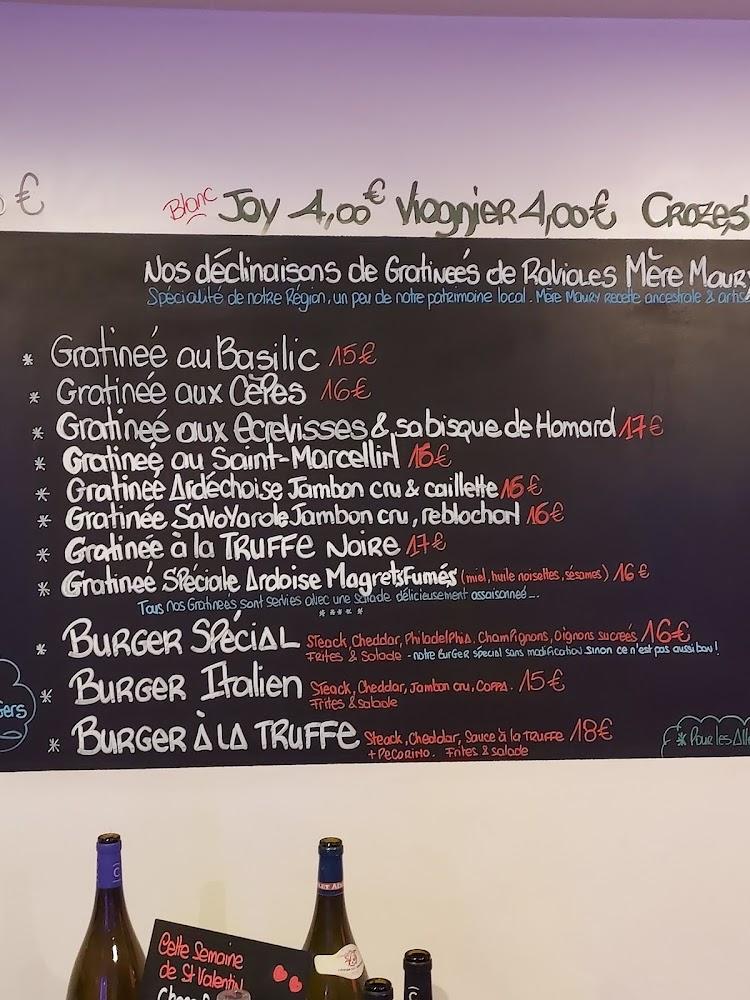 €
Blanc Joy 4,00€ Viognier 4,00€ Crozes
Nos déclinaisons de Gratineés de Ravioles Mère Maury
Spécialité de notre Région, un peu de notre patrimoine local. Mère Maury recette ancestrale & artis
* Gratineé au Basilic 15€
* Gratinée aux Cèpes 16€
* Gratineé aux ecrevisses & sa bisque de Homard 17€
* Gratineé au Saint-Marcellin 15€
* Gratineé Ardéchoise Jambon cru & caillette 15€
* Gratinée Savoyarde Jambon cru, reblochon 16€
* Gratinée à la TRUFFE NOIRE 17€
* Gratineé Spéciale Ardoise Magrets Fumés (miel, huile noisettes, sésames) 16€
Tous nos Gratineés sont servies avec une salade délicieusement assaisonneé....
*****
* BURGER SPÉCIAL Steack, Cheddar, Philadelphia, Champignons, Oignons sucreés 16€
Frites & Salade - notre Burger special sans modification sinon ce n'est pas aussi bon!
* BURGER Italien Steack, Cheddar, Jambon cru, Coppa. 15€
Frites & salade
gers
* BURGER À LA TRUFFE Steack, Cheddar, Sauce à la truffe 18€
+ Pecorino. Frites & salade
* Pour les Alle
Cette Semaine
de St Valentin